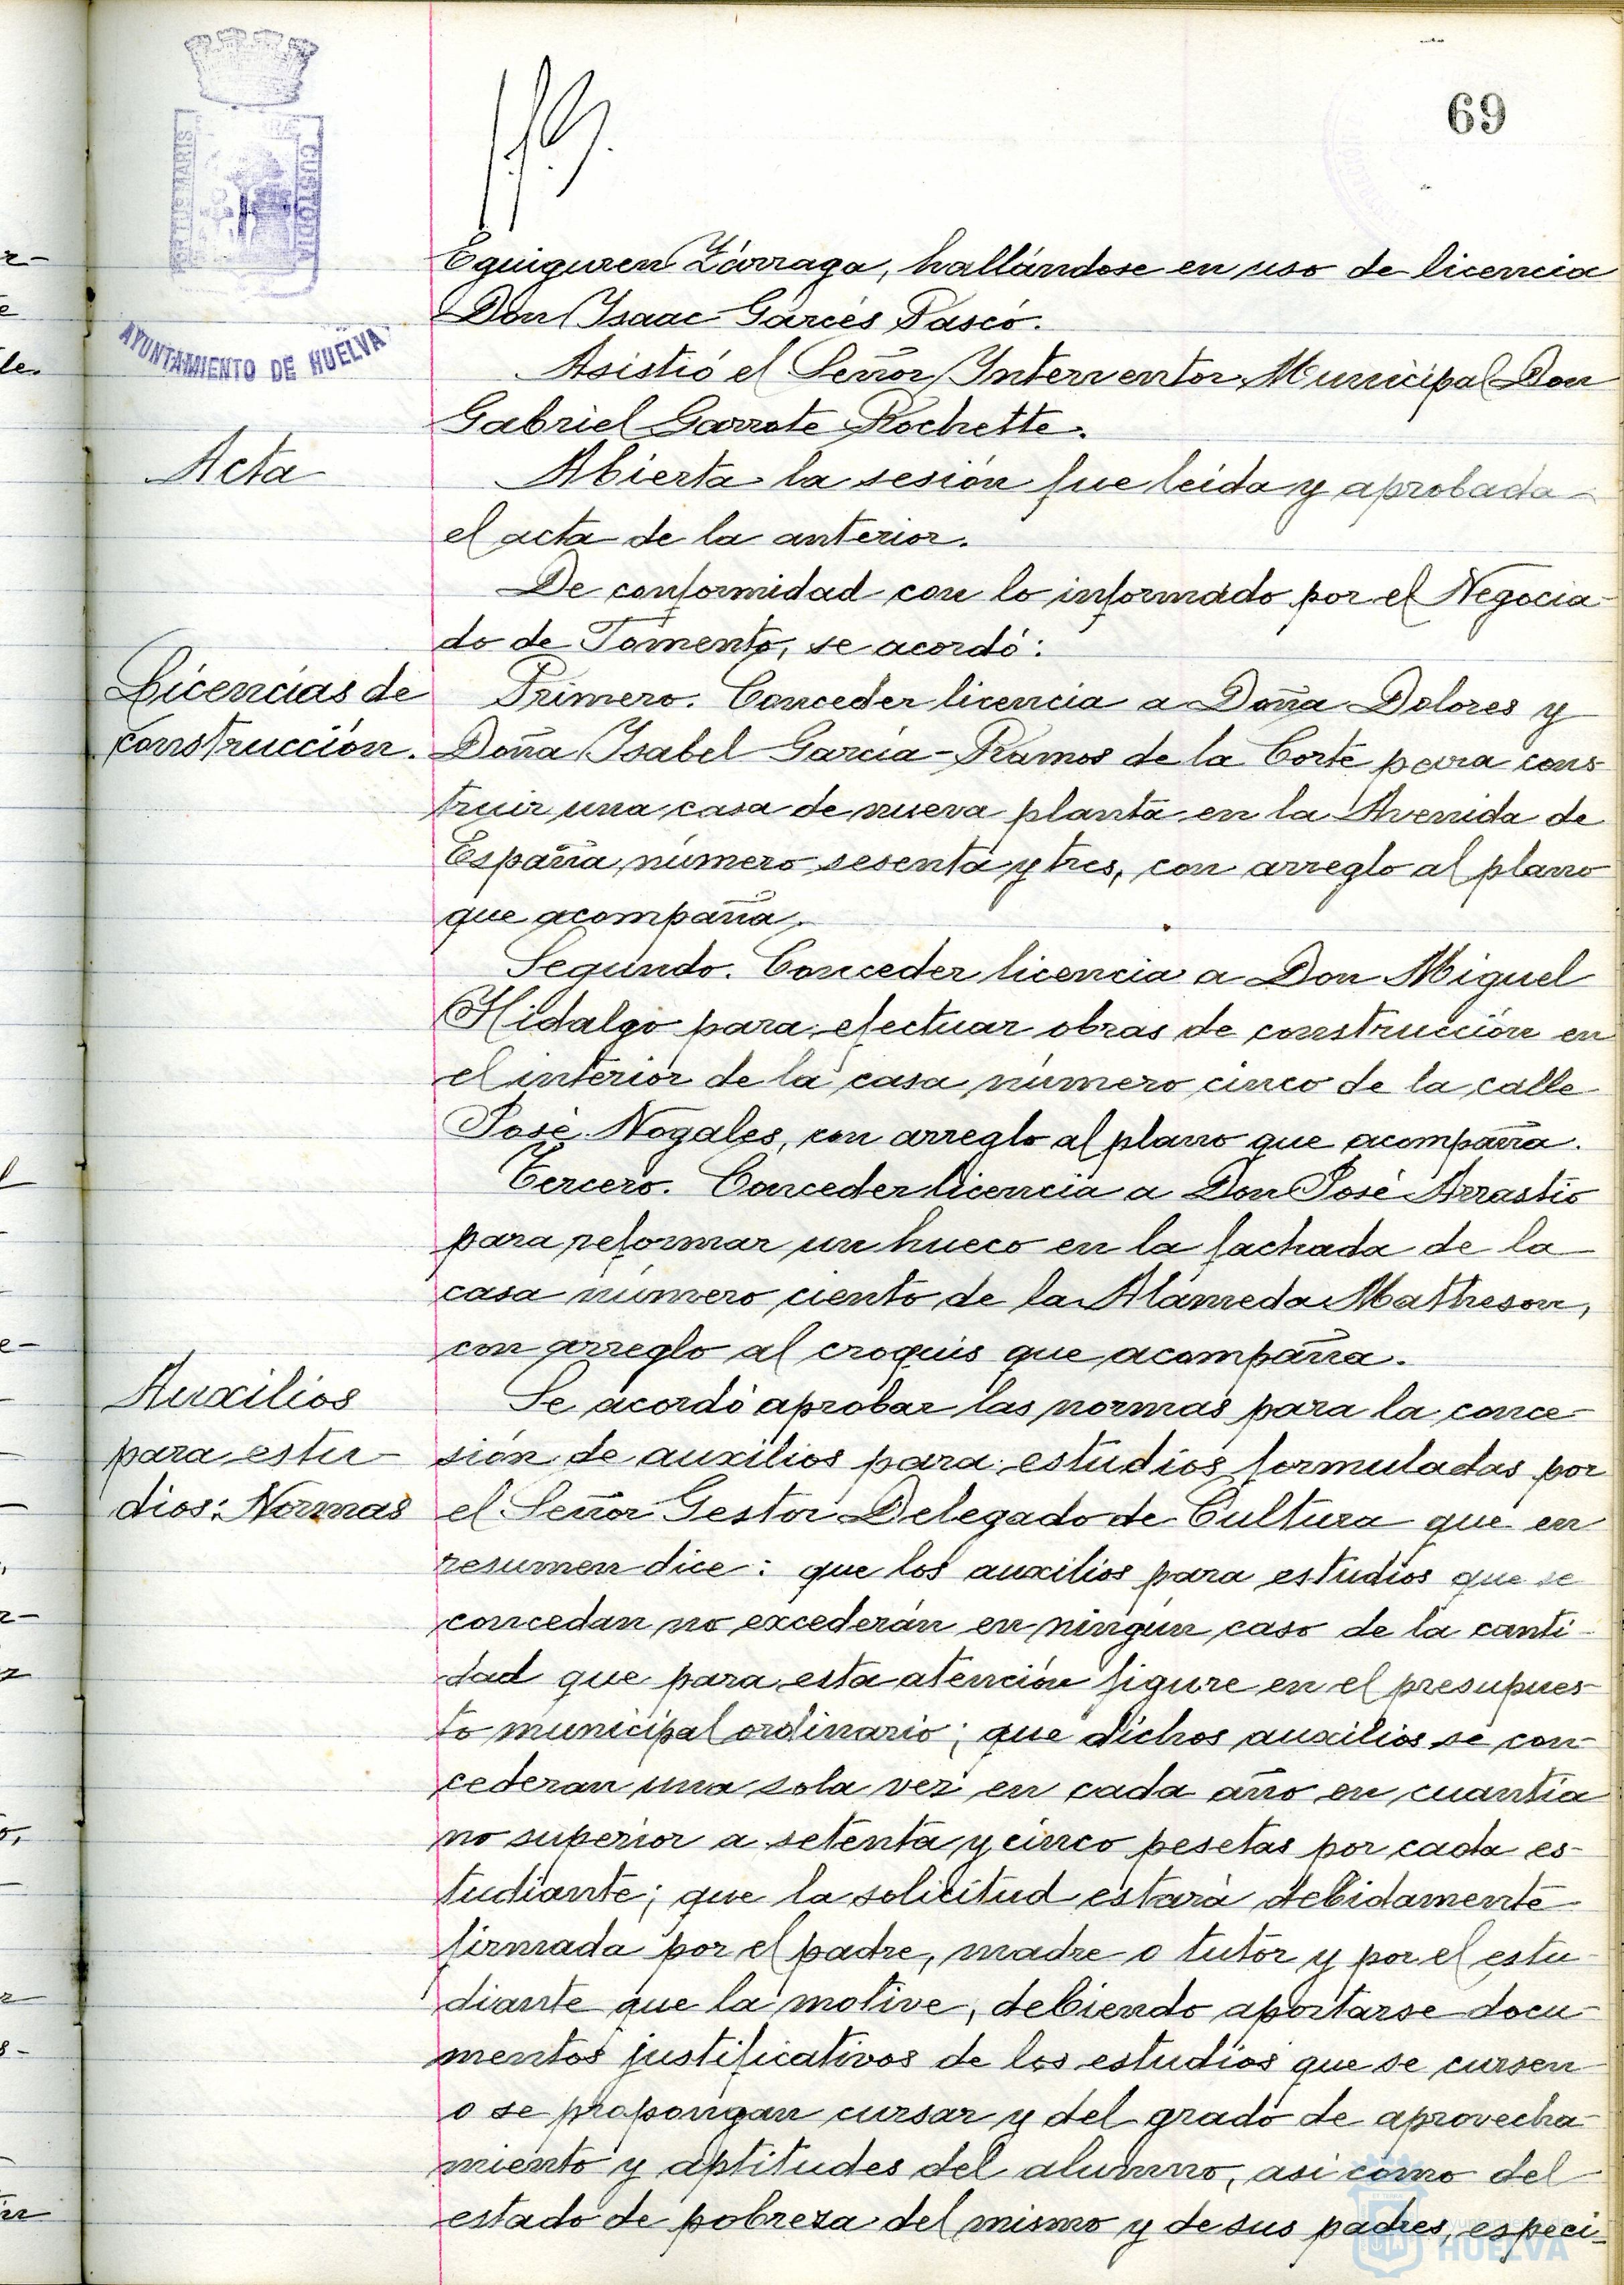 69
PORTUS MARIS
CUSTODIA
AYUNTAMIENTO DE HUELVA
Eguiguren Zárraga, hallándose en uso de licencia
Don Isaac Garcés Pascó.
Asistió el Señor Interventor Municipal Don
Gabriel Garrote Rochette.
Acta
Abierta la sesión fue leida y aprobada
el acta de la anterior.
De conformidad con lo informado por el Negocia-
do de Fomento, se acordó:
Licencias de
construcción.
Primero. Conceder licencia a Doña Dolores y
Doña Isabel Garcia-Ramos de la Corte para cons-
truir una casa de nueva planta en la Avenida de
España número sesenta y tres, con arreglo al plano
que acompaña.
Segundo. Conceder licencia a Don Miguel
Hidalgo para efectuar obras de construcción en
el interior de la casa número cinco de la calle
José Nogales, con arreglo al plano que acompaña.
Tercero. Conceder licencia a Don José Arrastio
para reformar un hueco en la fachada de la
casa número ciento de la Alameda Matheson,
con arreglo al croquis que acompaña.
Auxilios
para estu-
dios: Normas
Se acordó aprobar las normas para la conce-
sión de auxilios para estudios formuladas por
el Señor Gestor Delegado de Cultura que en
resumen dice: que los auxilios para estudios que se
concedan no excederán en ningún caso de la canti-
dad que para esta atención figure en el presupues-
to municipal ordinario; que dichos auxilios se con-
cederan una sola vez en cada año en cuantia
no superior a setenta y cinco pesetas por cada es-
tudiante; que la solicitud estará debidamente
firmada por el padre, madre o tutor y por el estu-
diante que la motive, debiendo aportarse docu-
mentos justificativos de los estudios que se cursen
o se propongan cursar y del grado de aprovecha-
miento y aptitudes del alumno, asi como del
estado de pobreza del mismo y de sus padres, especi-
Ayuntamiento de
HUELVA